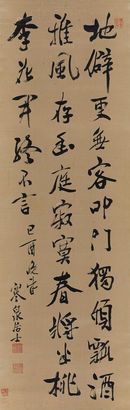 地僻更無客叩門獨傾瓢酒
雅風存幽庭寂寞春將半桃
李花開終不言 己酉
寒泉居士